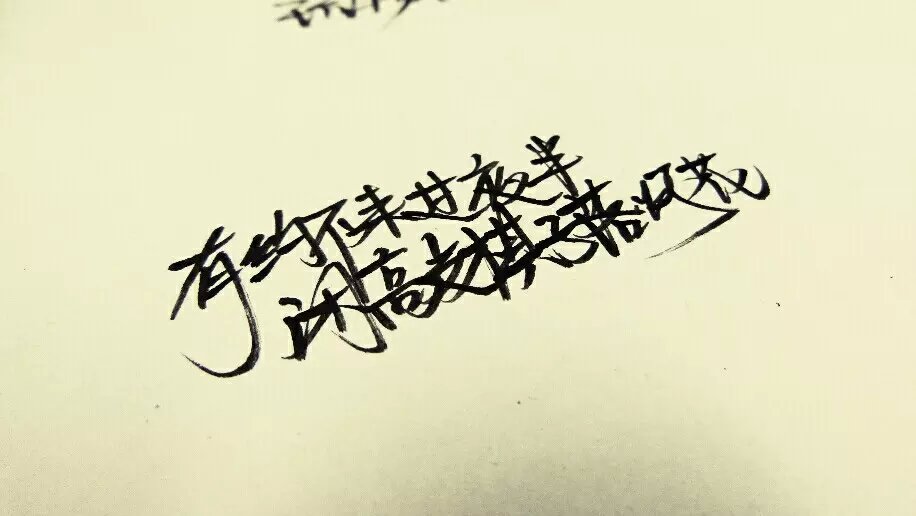 有约不来过夜半
闲高敲棋子落灯花